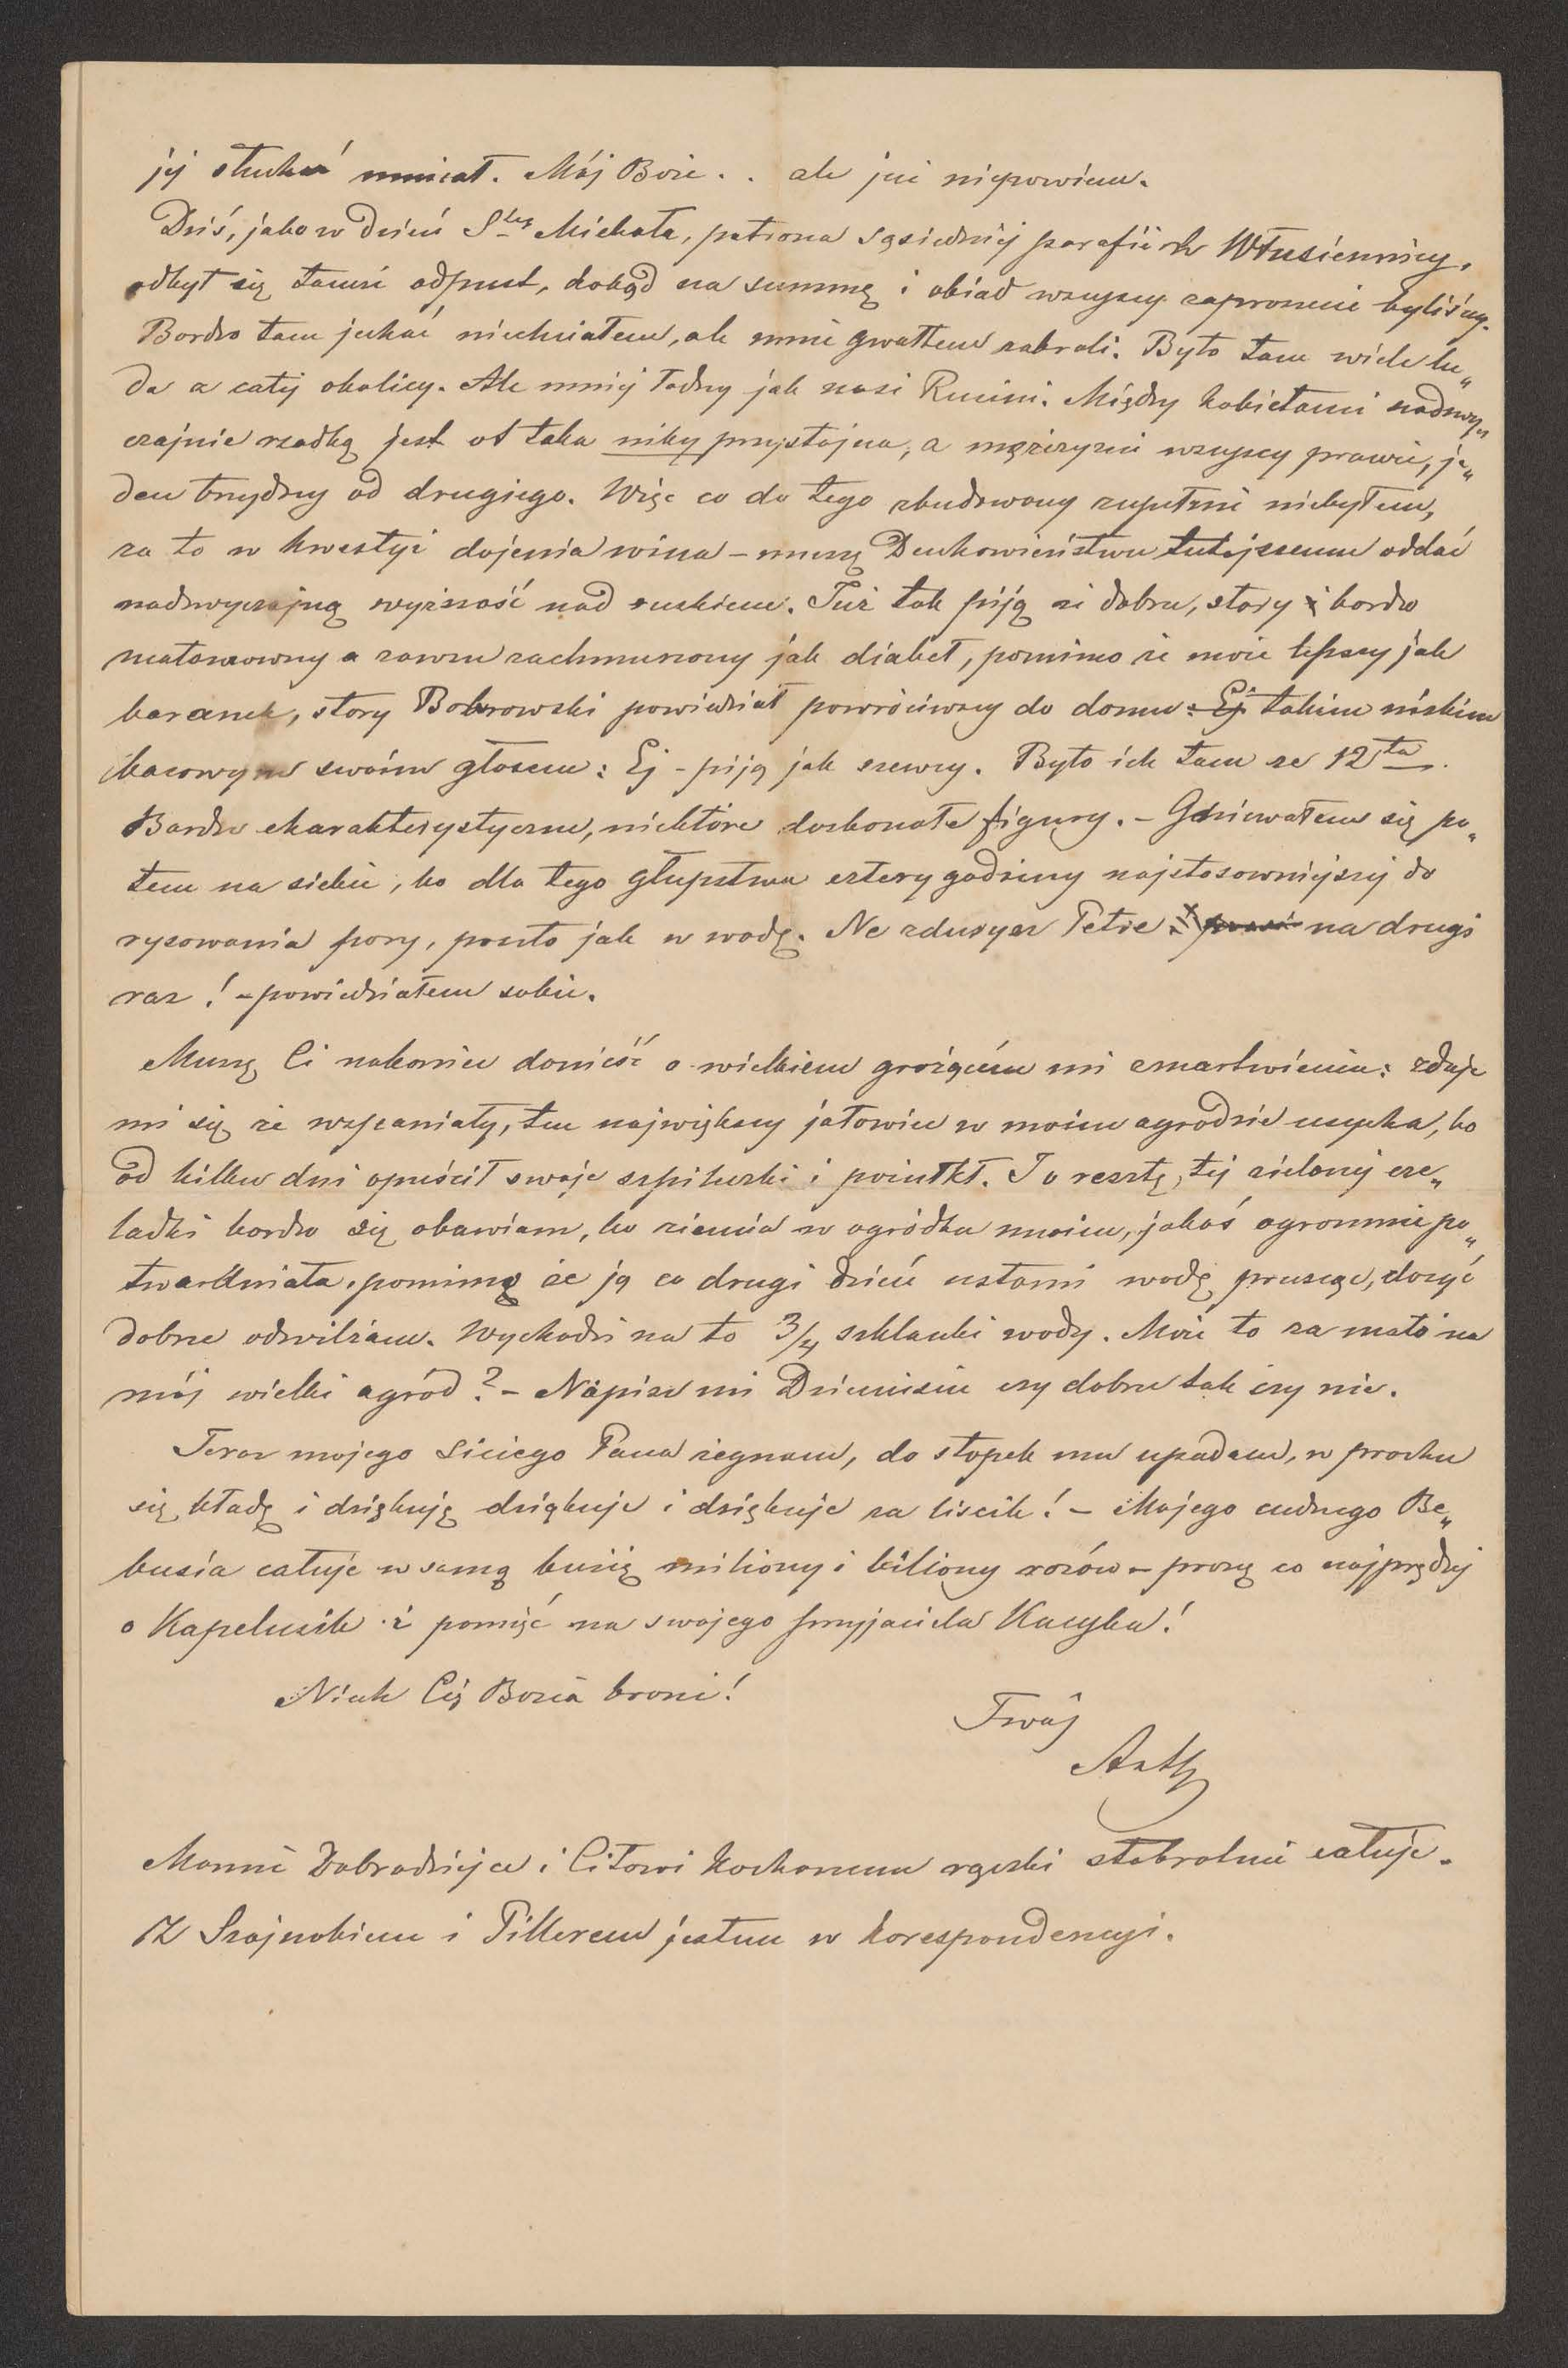 jej słuchać musiał. Mój Boże . . ale już niepowiem.
Dziś, jako w dzień Stego Michała, patrona sąsiedniej parafii w Włusiennicy,
odbył się tamże odpust, dokąd na summę i obiad wszyscy zaproszeni byliśmy.
Bardzo tam jechać niechciałem, ale mnie gwałtem zabrali. Było tam wiele lu„
du z całej okolicy. Ale mniej ładny jak nasi Rusini. Między kobietami nadzwy„
czajnie rzadką jest ot taka niby przystojna, a mężczyzni wszyscy prawie, je„
den brzydszy od drugiego. Więc co do tego zbudowany zupełnie niebyłem,
za to w kwestyi dojenia wina – muszę Duchowieństwu tutejszemu oddać
nadzwyczajną wyższość nad ruskiem. Już tak piją że dobry, stary i bardzo
małomowny a zawsze zachmurzony jak diabeł, pomimo że może lepszy jak
baranek, stary Bobrowski powiedział powróciwszy do domu: Ej takim niskim
basowym swoim głosem: Ej – piją jak szewcy. Było ich tam ze 12ta.
Bardzo charakterystyczne, niektóre doskonałe figury. – Gniewałem się po„
tem na siebie, bo dla tego głupstwa cztery godziny najstosowniejszej do
rysowania pory, poszło jak w wodę. Ne zdurysz Petre na drugi
raz! – powiedziałem sobie.
Muszę Ci nakoniec donieść o wielkiem grożącém mi zmartwieniu: zdaje
mi się że wspaniały, ten największy jałowiec w moim ogrodzie usycha, bo
od kilku dni opuścił swoje szpilurki i pożółkł. I o resztę, tej zielonej cze„
ladki bardzo się obawiam, bo ziemia w ogródku moim, jakoś ogromnie po„
twardniała, pomimo że ją co drugi dzień ustami wodę prusząc, dosyć
dobrze odwilżam. Wychodzi na to 3/4 szklanki wody. Może to za mało na
mój wielki ogród? – Napisz mi Dziunisiu czy dobrze tak czy nie.
Teraz mojego Siciego Pana żegnam, do stopek mu upadam, w prochu
się kładę i dziękuję dziękuje i dziękuje za liscik! – Mojego cudnego Be„
busia całuje w samą buzię miliony i biliony razów – proszę co najprędzej
o Kapelusik i pomięć na swojego przyjaciela Kucyka!
Niech Cię Bozia broni!
Twój
Art
Mamie Dobrodziejce i Citowi kochanemu rączki stokrotnie całuje.
Z Szajnokiem i Pillerem jestem w korespondencyi.